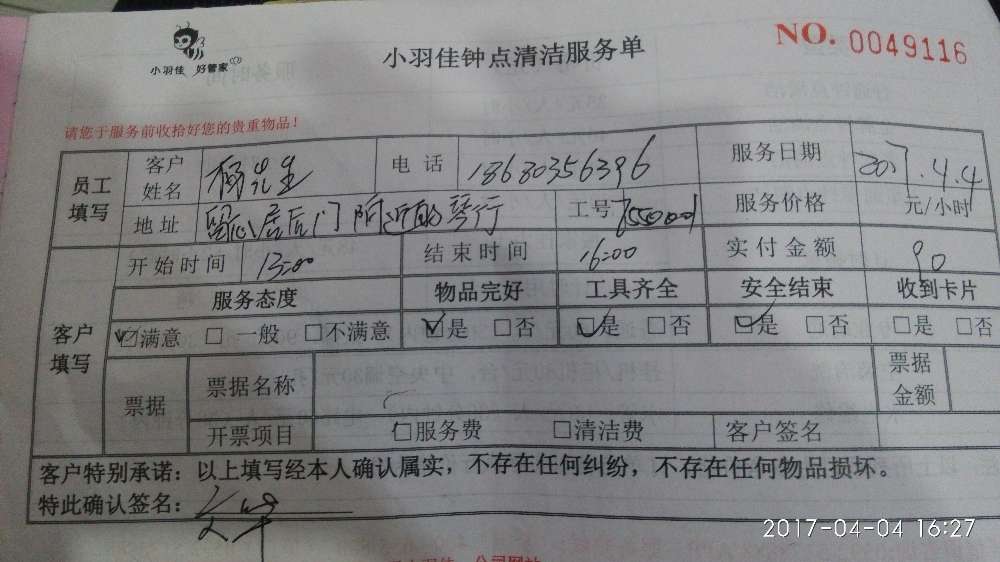 小羽佳 好管家
小羽佳钟点清洁服务单
NO. 0049116
请您于服务前收拾好您的贵重物品！
员工填写 客户姓名 杨先生 电话 18680356396 服务日期 2017.4.4
地址 留心居后门附近的琴行 工号 服务价格 元/小时
开始时间 13:00 结束时间 16:00 实付金额 90
客户填写 服务态度 物品完好 工具齐全 安全结束 收到卡片
☑满意 □一般 □不满意 ☑是 □否 ☑是 □否 ☑是 □否 □是 □否
票据 票据名称 票据金额
开票项目 □服务费 □清洁费 客户签名
客户特别承诺：以上填写经本人确认属实，不存在任何纠纷，不存在任何物品损坏。
特此确认签名：
2017-04-04 16:27